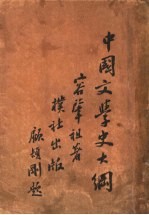 中國文學史大綱
容肇祖著
樸社出版
顧頡剛題